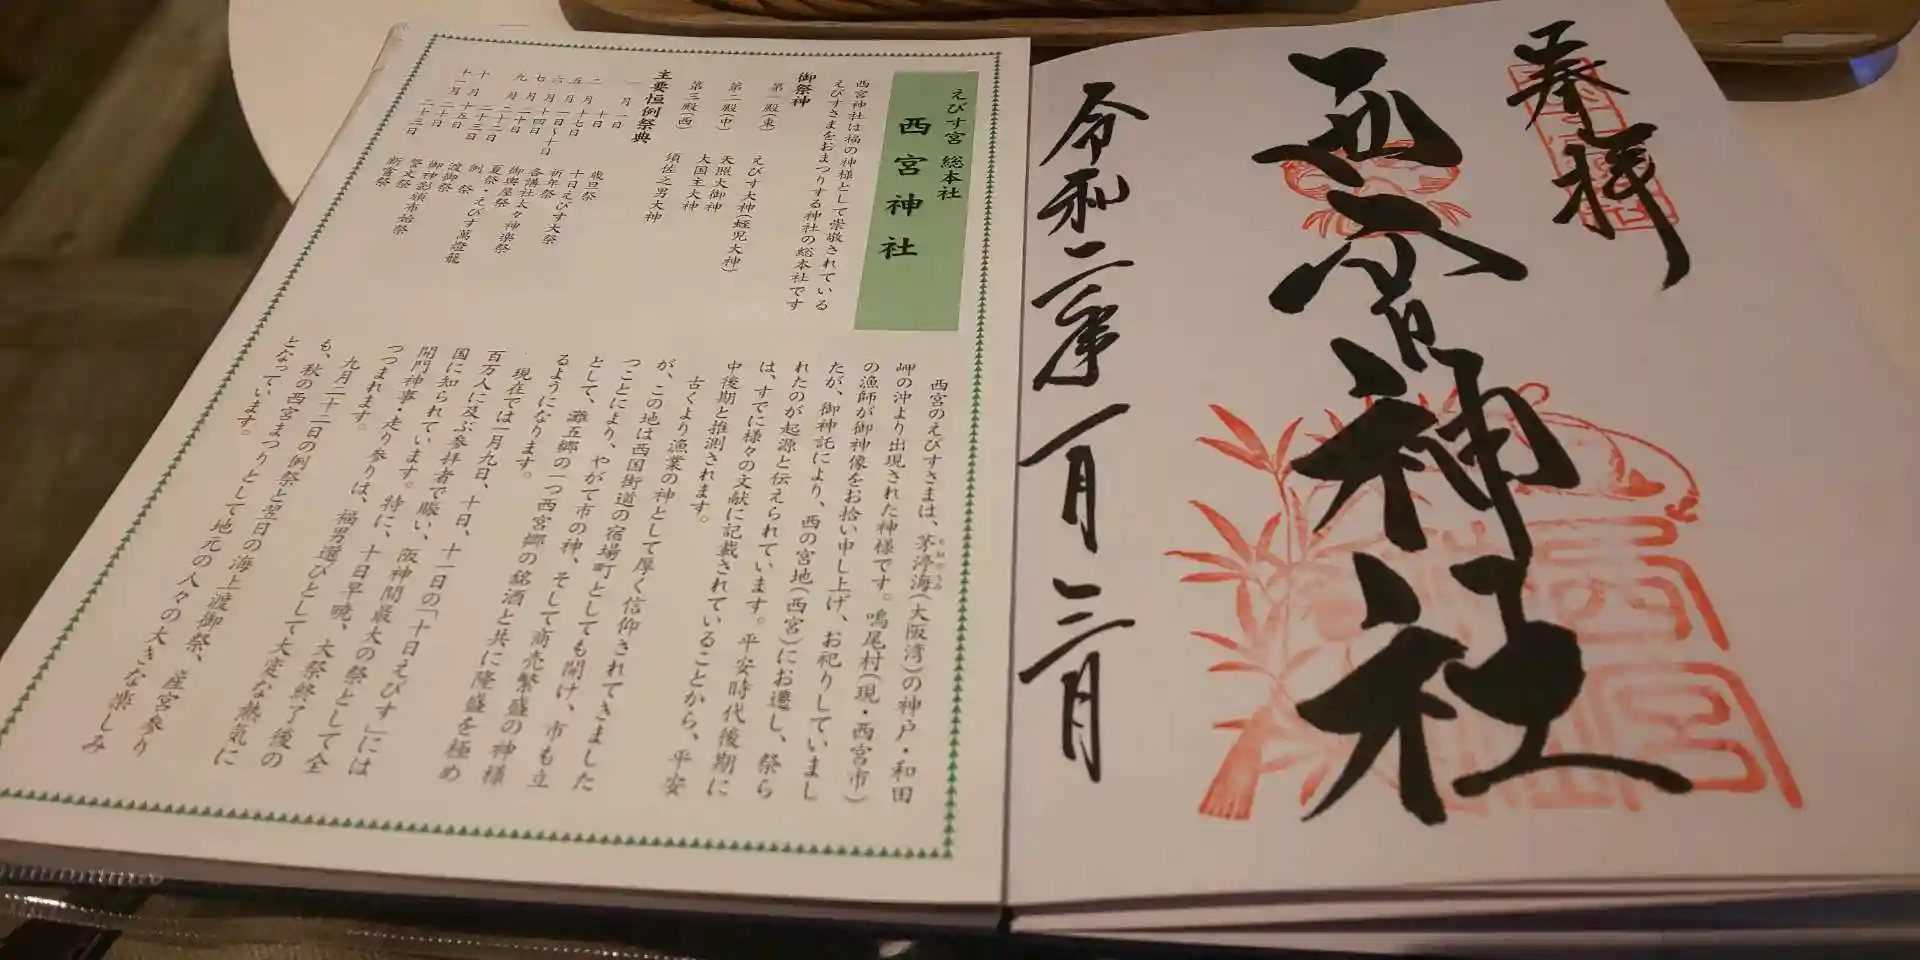 奉拝
西宮神社
令和二年一月三日
えびす宮 総本社
西宮神社
西宮神社は福の神様として崇敬されている
えびすさまをおまつりする神社の総本社です
御祭神
第一殿(東) えびす大神(蛭児大神)
第二殿(中) 天照大御神
大国主大神
第三殿(西) 須佐之男大神
主要恒例祭典
一月一日 歳旦祭
十日 十日えびす大祭
二月
西宮のえびすさまは、茅渟海(大阪湾)の神戸・和田
岬の沖より出現された神様です。鳴尾村(現・西宮市)
の漁師が御神像をお拾い申し上げ、お祀りしていまし
たが、御神託により、西の宮地(西宮)にお遷し、祭ら
れたのが起源と伝えられています。平安時代後期に
は、すでに様々の文献に記載されていることから、平安
中後期と推測されます。
古くより漁業の神として厚く信仰されてきました
が、この地は西国街道の宿場町としても開け、市も立
つことにより、やがて市の神、そして商売繁盛の神様
として、灘五郷の一つ西宮郷の銘酒と共に隆盛を極め
るようになります。
現在では一月九日、十日、十一日の「十日えびす」には
百万人に及ぶ参拝者で賑い、阪神間最大の祭として全
国に知られています。特に、十日早暁、大祭終了後の
開門神事・走り参りは、福男選びとして大変な熱気に
つつまれます。
九月二十二日の例祭と翌日の海上渡御祭、産宮参り
も、秋の西宮まつりとして地元の人々の大きな楽しみ
となっています。